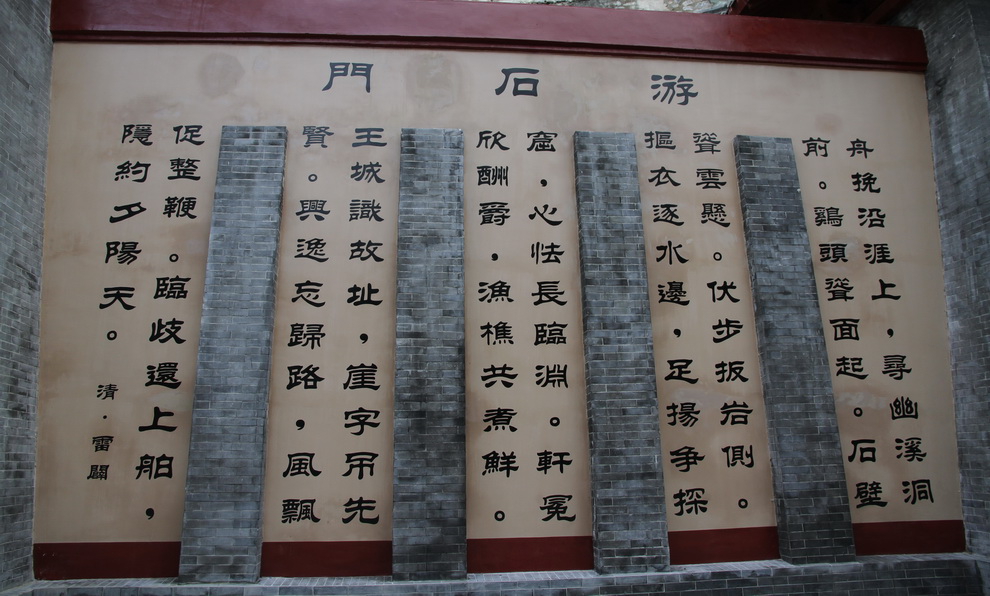 游石門
舟挽沿涯上，尋幽溪洞
前。鷄頭聳面起。石壁
聳雲懸。伏步扳岩側。
摳衣逐水邊，足揚争探
窟，心怯長臨淵。軒冕
欣酬爵，漁樵共煮鮮。
王城識故址，崖字吊先
賢。興逸忘歸路，風飄
促整鞭。臨歧還上舶，
隱約夕陽天。
清·雷